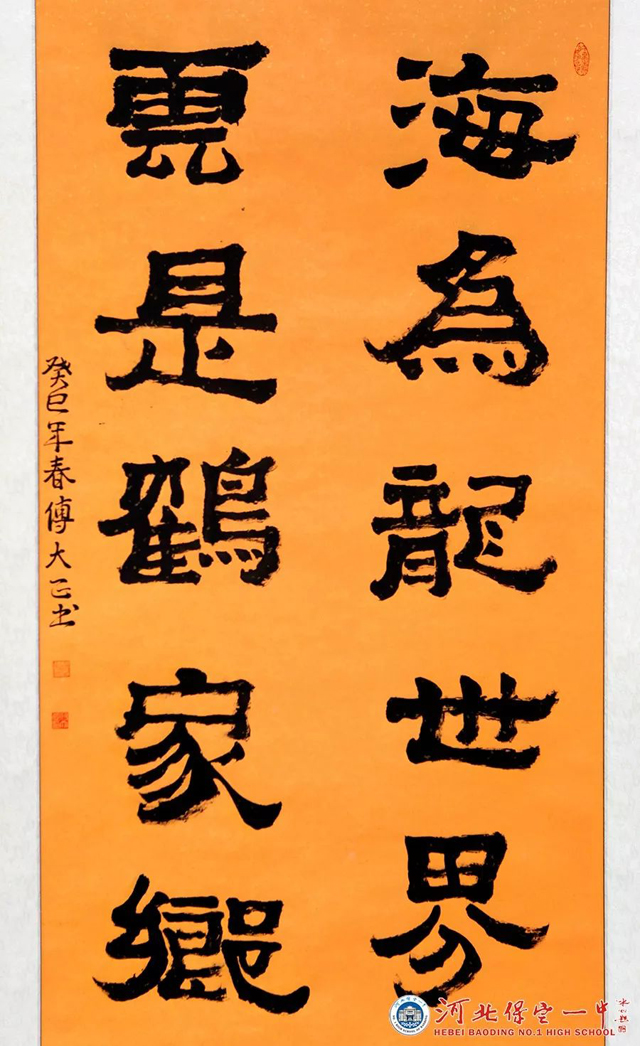 海為龍世界
雲是鶴家鄉
癸巳年春傅大正书
河北保定一中
HEBEI BAODING NO.1 HIGH SCHOOL